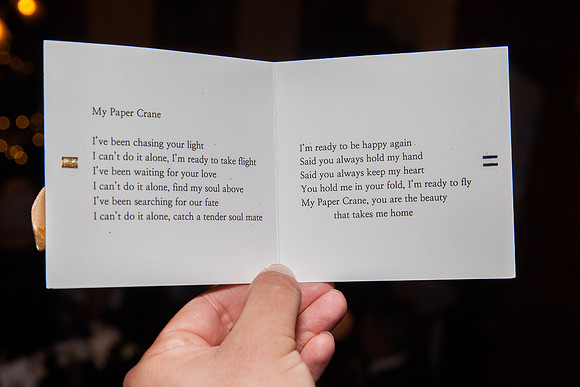 My Paper Crane
I've been chasing your light
I can't do it alone, I'm ready to take flight
I've been waiting for your love
I can't do it alone, find my soul above
I've been searching for our fate
I can't do it alone, catch a tender soul mate
I'm ready to be happy again
Said you always hold my hand
Said you always keep my heart
You hold me in your fold, I'm ready to fly
My Paper Crane, you are the beauty
that takes me home